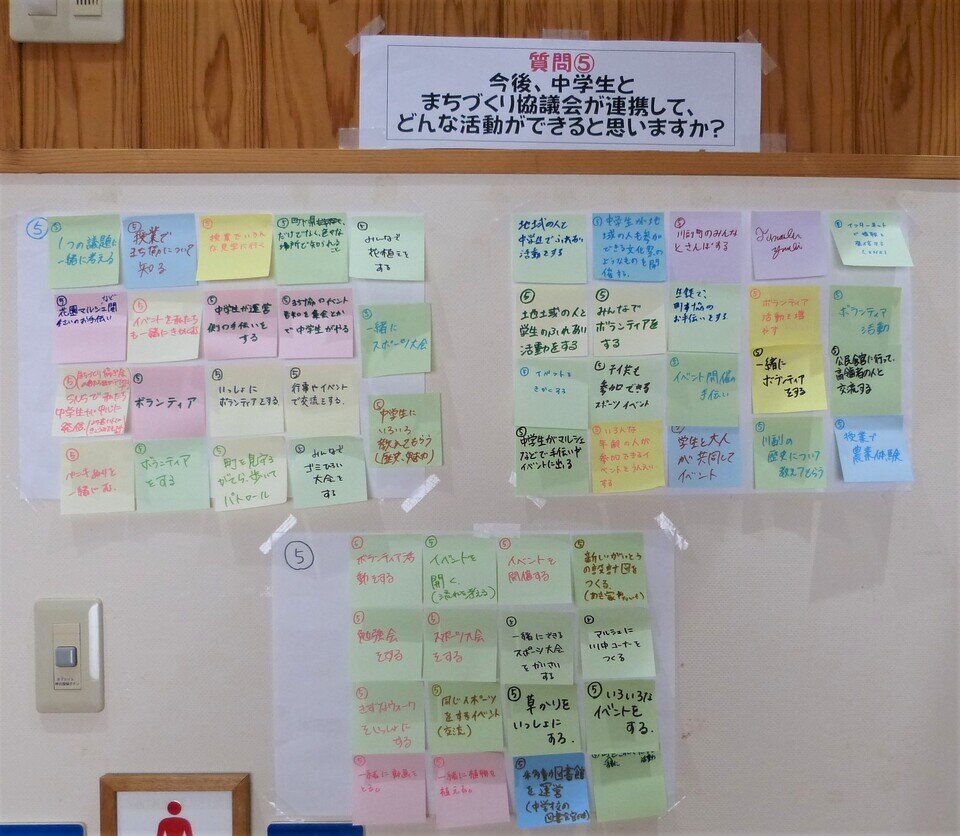 質問⑤
今後、中学生と
まちづくり協議会が連携して、
どんな活動ができると思いますか？
⑤
⑤
1つの議題に
一緒に考える
⑤
授業で
まち協について
知る
⑤
授業でいろん
な見学に行く
⑤
だけでなく、色々な
⑤
みんなで
花植えを
する
⑤
花園マルシェ開
のお手伝い
⑤
イベントを私たち
も一緒に
⑤
中学生が運営
側の手伝いを
する
⑤
まち協やイベント
告知を集会とか
で中学生がやる
⑤
一緒に
スポーツ大会
SNSで私たち
中学生が中心に
発信
⑤
ボランティア
⑤
いっしょに
ボランティアをする
⑤
行事やイベント
で交流をする。
⑤
中学生に
いろいろ
教えてもらう
(歴史、魅力)
⑤
ペンキぬりを
一緒に
⑤
ボランティア
をする
⑤
町を見守り
がてら、歩いて
パトロール
⑤
みんなで
ゴミひろい
大会を
する
地域の人と
中学生でふれあい
活動をする
中学生が地
域の人も参加
できる文化祭の
ようなものを開
催する。
⑤
川副町のみんな
とさんぽする
⑤
インターネット
で
発信する
⑤
の人と
学生のふれあい
活動をする
⑤
みんなで
ボランティアを
する
生徒で、
町協の
お手伝いをする
⑤
ボランティア
活動を増
やす
⑤
ボランティア
活動
⑤
イベントを
きかくする
⑤
子供も
参加できる
スポーツイベント
⑤
イベント開催の
手伝い
⑤
一緒に
ボランティア
をする
⑤
公民館に行って、
高齢者の人と
交流する
⑤
中学生がマルシェ
などで手伝い
イベントに出る
⑤
いろんな
年齢の人が
参加できるイ
ベントを
する
⑤
学生と大人
が共同して
イベント
⑤
川副の
歴史について
教えてもらう
⑤
授業で
農業体験
⑤
⑤
ボランティア活
動をする
⑤
イベントを
開く。
(流れを考える)
⑤
イベントを
開催する
⑤
の設計図を
つくる。
⑤
勉強会
をする
⑤
スポーツ大会
をする
⑤
一緒にできる
スポーツ大会
をかいさい
する
⑤
マルシェに
コーナーを
つくる
⑤
きずなウォーク
をいっしょに
する
⑤
同じスポーツ
をするイベント
(交流)
⑤
草かりを
いっしょに
する.
⑤
いろいろな
イベントを
する.
⑤
一緒に動画を
とる。
⑤
一緒に植物を
植える。
⑤
移動図書館
を運営
(中学校の